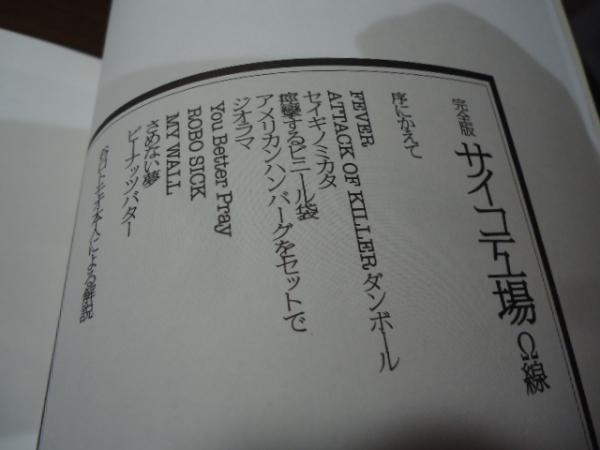 完全版 サイコ工場 Ω線
序にかえて
FEVER
ATTACK OF KILLER ダンボール
セイギノミカタ
痙攣するビニール袋
アメリカンハンバーグをセットで
ジオラマ
You Better Pray
ROBO SICK
MY WALL
さめない夢
ピーナッツバター
谷口トモオ本人による解説